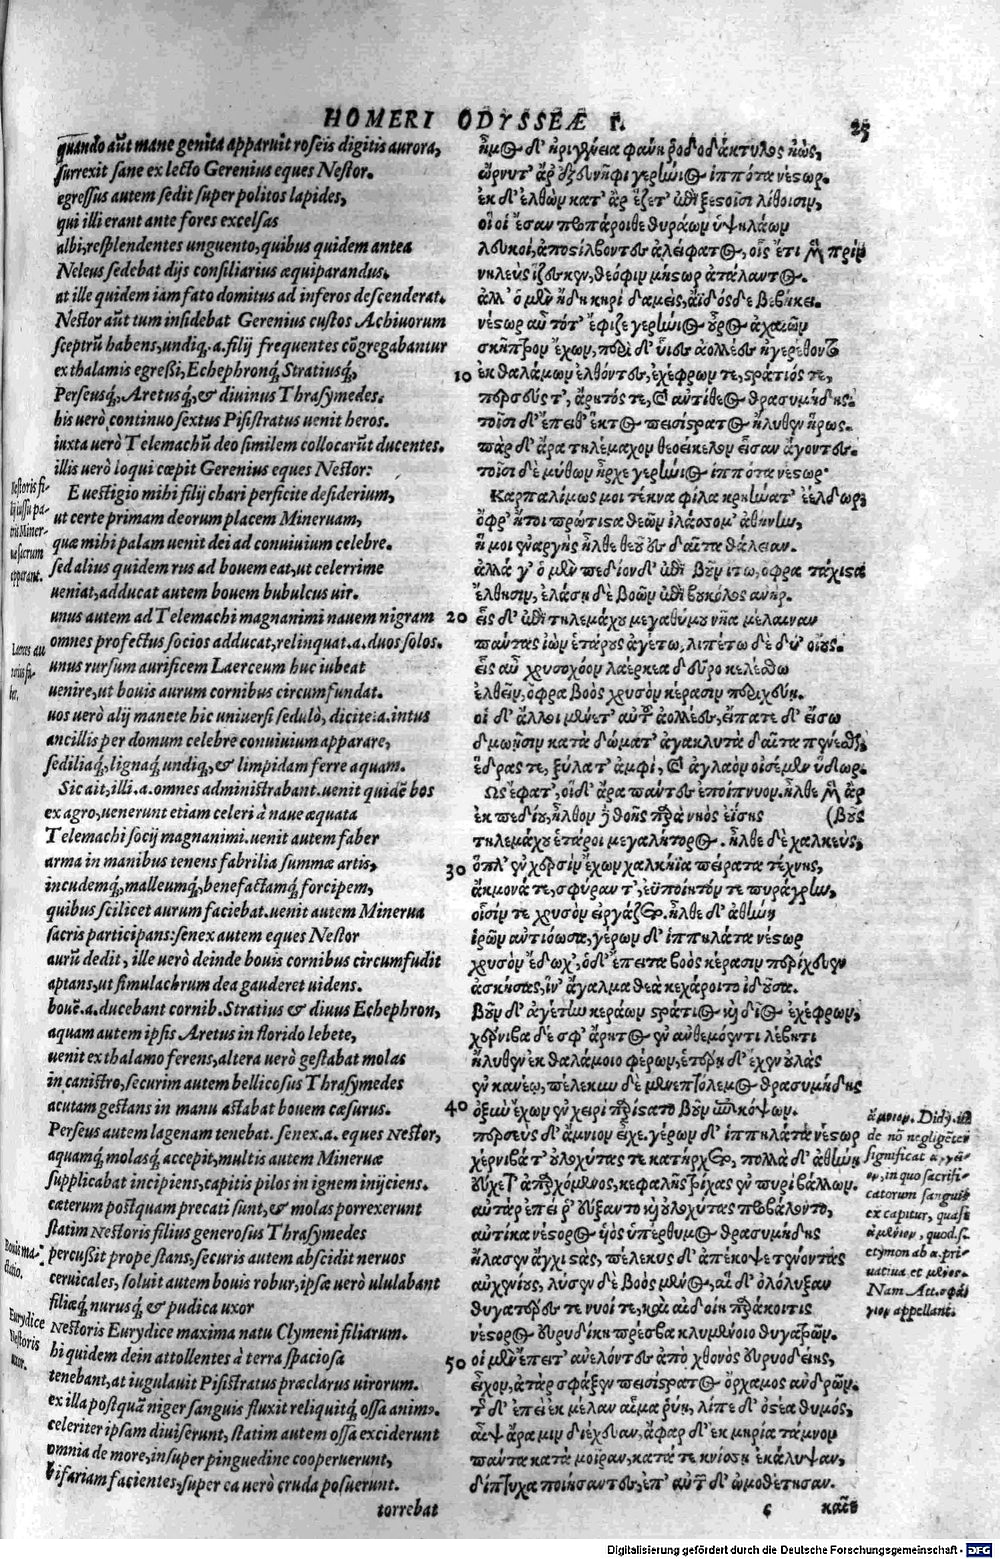 HOMERI ODYSSEÆ Γ.
25
quando aūt mane genita apparuit roseis digitis aurora,
surrexit sane ex lecto Gerenius eques Nestor.
egressus autem sedit super politos lapides,
qui illi erant ante fores excelsas
albi, resplendentes unguento, quibus quidem antea
Neleus sedebat dijs consiliarius æquiparandus.
at ille quidem iam fato domitus ad inferos descenderat.
Nestor aūt tum insidebat Gerenius custos Achiuorum
sceptrū habens, undiq;.a. filij frequentes cōgregabantur
ex thalamis egreßi, Echephronq́;, Stratiusq́;,
Perseusq́;, Aretusq́;, & diuinus Thrasymedes.
his uerò continuo sextus Pisistratus uenit heros.
iuxta uerò Telemachū deo similem collocarūt ducentes.
illis uerò loqui cœpit Gerenius eques Nestor:
E uestigio mihi filij chari perficite desiderium,
ut certe primam deorum placem Mineruam,
quæ mihi palam uenit dei ad conuiuium celebre.
sed alius quidem rus ad bouem eat, ut celerrime
ueniat, adducat autem bouem bubulcus uir.
unus autem ad Telemachi magnanimi nauem nigram
omnes profectus socios adducat, relinquat.a. duos solos.
unus rursum aurificem Laerceum huc iubeat
uenire, ut bouis aurum cornibus circumfundat.
uos uerò alij manete hic uniuersi sedulò, dicite.a. intus
ancillis per domum celebre conuiuium apparare,
sediliaq́;, lignaq́; undiq;, & limpidam ferre aquam.
Sic ait, illi.a. omnes administrabant. uenit quidē bos
ex agro, uenerunt etiam celeri à naue æquata
Telemachi socij magnanimi. uenit autem faber
arma in manibus tenens fabrilia summæ artis,
incudemq́;, malleumq́;, benefactamq́; forcipem,
quibus scilicet aurum faciebat. uenit autem Minerua
sacris participans: senex autem eques Nestor
aurū dedit, ille uerò deinde bouis cornibus circumfudit
aptans, ut simulachrum dea gauderet uidens.
bouē.a. ducebant cornib. Stratius & diuus Echephron,
aquam autem ipsis Aretus in florido lebete,
uenit ex thalamo ferens, altera uerò gestabat molas
in canistro, securim autem bellicosus Thrasymedes
acutam gestans in manu astabat bouem cæsurus.
Perseus autem lagenam tenebat. senex.a. eques Nestor,
aquamq́; molasq́; accepit, multis autem Mineruæ
supplicabat incipiens, capitis pilos in ignem inijciens.
cæterum postquam precati sunt, & molas porrexerunt
statim Nestoris filius generosus Thrasymedes
percußit prope stans, securis autem abscidit neruos
ceruicales, soluit autem bouis robur, ipsæ uerò ululabant
filiæq́; nurusq́; & pudica uxor
Nestoris Eurydice maxima natu Clymeni filiarum.
hi quidem dein attollentes à terra spaciosa
tenebant, at iugulauit Pisistratus præclarus uirorum.
ex illa postquā niger sanguis fluxit reliquitq́; ossa anim⁹.
celeriter ipsam diuiserunt, statim autem ossa exciderunt
omnia de more, insuper pinguedine cooperuerunt,
bifariam facientes, super ea uerò cruda posuerunt.
torrebat
Nestoris fi-
lij iussu pa-
tris Miner-
uæ sacrum
apparant.
Laerceus au
rarius fa-
ber.
Bouis ma-
ctatio.
Eurydice
Nestoris
uxor.
ἦμος δ' ἠριγένεια φάνη ῥοδοδάκτυλος ἠὼς,
ὤρνυτ' ἄρ' ἐξ εὐνῆφι γερήνιος ἱππότα νέστωρ.
ἐκ δ' ἐλθὼν κατ' ἄρ' ἕζετ' ἐπὶ ξεστοῖσι λίθοισιν,
οἵ οἱ ἔσαν προπάροιθε θυράων ὑψηλάων
λευκοὶ, ἀποστίλβοντες ἀλείφατος, οἷς ἔτι μὲν πρὶν
νηλεὺς ἵζεσκεν, θεόφιν μήστωρ ἀτάλαντος.
ἀλλ' ὁ μὲν ἤδη κηρὶ δαμεὶς, ἄϊδόσδε βεβήκει.
νέστωρ αὖ τότ' ἔφιζε γερήνιος οὖρος ἀχαιῶν
σκῆπτρον ἔχων, περὶ δ' υἷες ἀολλέες ἠγερέθοντο
10 ἐκ θαλάμων ἐλθόντες, ἐχέφρων τε, στράτιός τε,
περσεύς τ', ἄρητός τε, καὶ ἀντίθεος θρασυμήδης.
τοῖσι δ' ἔπειθ' ἕκτος πεισίστρατος ἤλυθεν ἥρως.
πὰρ δ' ἄρα τηλέμαχον θεοείκελον εἷσαν ἄγοντες.
τοῖσι δὲ μύθων ἦρχε γερήνιος ἱππότα νέστωρ·
Καρπαλίμως μοι τέκνα φίλα κρηήνατ' ἐέλδωρ,
ὄφρ' ἤτοι πρώτιστα θεῶν ἱλάσσομ' ἀθήνην,
ἥ μοι ἐναργὴς ἦλθε θεοῦ ἐς δαῖτα θάλειαν.
ἀλλά γ' ὁ μὲν πεδίονδ' ἐπὶ βοῦν ἴτω, ὄφρα τάχιστα
ἔλθησιν, ἐλάσῃ δὲ βοῶν ἐπὶ βουκόλος ἀνήρ.
20 εἷς δ' ἐπὶ τηλεμάχου μεγαθύμου νῆα μέλαιναν
πάντας ἰὼν ἑτάρους ἀγέτω, λιπέτω δὲ δύ' οἴους.
εἷς αὖ χρυσοχόον λαέρκεα δεῦρο κελέσθω
ἐλθεῖν, ὄφρα βοὸς χρυσὸν κέρασιν περιχεύῃ.
οἱ δ' ἄλλοι μένετ' αὐτοῦ ἀολλέες, εἴπατε δ' εἴσω
δμωῇσιν κατὰ δώματ' ἀγακλυτὰ δαῖτα πένεσθαι,
ἕδρας τε, ξύλα τ' ἀμφὶ, καὶ ἀγλαὸν οἰσέμεν ὕδωρ.
Ὣς ἔφατ', οἱ δ' ἄρα πάντες ἐποίπνυον. ἦλθε μὲν ἂρ
ἐκ πεδίου, ἦλθον δὲ θοῆς παρὰ νηὸς ἐΐσης (βοῦς
τηλεμάχου ἕταροι μεγαλήτορος. ἦλθε δὲ χαλκεὺς,
30 ὅπλ' ἐν χερσὶν ἔχων χαλκήϊα πείρατα τέχνης,
ἄκμονά τε, σφύραν τ', ἐϋποίητόν τε πυράγρην,
οἷσίν τε χρυσὸν εἰργάζετο. ἦλθε δ' ἀθήνη
ἱρῶν ἀντιόωσα, γέρων δ' ἱππηλάτα νέστωρ
χρυσὸν ἔδωχ', ὁ δ' ἔπειτα βοὸς κέρασιν περίχευεν
ἀσκήσας, ἵν' ἄγαλμα θεὰ κεχάροιτο ἰδοῦσα.
βοῦν δ' ἀγέτην κεράων στράτιος καὶ δῖος ἐχέφρων,
χέρνιβα δέ σφ' ἄρητος ἐν ἀνθεμόεντι λέβητι
ἤλυθεν ἐκ θαλάμοιο φέρων, ἑτέρῃ δ' ἔχεν οὐλὰς
ἐν κανέῳ, πέλεκυν δὲ μενεπτόλεμος θρασυμήδης
40 ὀξὺν ἔχων ἐν χειρὶ παρίστατο βοῦν ἐπικόψων.
περσεὺς δ' ἄμνιον εἶχε. γέρων δ' ἱππηλάτα νέστωρ
χέρνιβά τ' οὐλοχύτας τε κατήρχετο, πολλὰ δ' ἀθήνῃ
εὔχετ' ἀπαρχόμενος, κεφαλῆς τρίχας ἐν πυρὶ βάλλων.
αὐτὰρ ἐπεί ῥ' εὔξαντο καὶ οὐλοχύτας προβάλοντο,
αὐτίκα νέστορος υἱὸς ὑπέρθυμος θρασυμήδης
ἤλασεν ἄγχι στὰς, πέλεκυς δ' ἀπέκοψε τένοντας
αὐχενίους, λύσεν δὲ βοὸς μένος, αἱ δ' ὀλόλυξαν
θυγατέρες τε νυοί τε, καὶ αἰδοίη παράκοιτις
νέστορος εὐρυδίκη πρέσβα κλυμένοιο θυγατρῶν.
50 οἱ μὲν ἔπειτ' ἀνελόντες ἀπὸ χθονὸς εὐρυοδείης,
εἶχον, ἀτὰρ σφάξεν πεισίστρατος ὄρχαμος ἀνδρῶν.
τῆς δ' ἐπεὶ ἐκ μέλαν αἷμα ῥύη, λίπε δ' ὀστέα θυμὸς,
αἶψ' ἄρα μιν διέχευαν, ἄφαρ δ' ἐκ μηρία τάμνον
πάντα κατὰ μοῖραν, κατά τε κνίσσῃ ἐκάλυψαν,
δίπτυχα ποιήσαντες, ἐπ' αὐτῶν δ' ὠμοθέτησαν.
c καῖε
ἄμνιον. Didy. in
de nō negligēter
significat
in quo sacrifi-
catorum sanguis
excipitur, quasi
quod.s.
etymon ab α. pri-
uatiua et μένος.
Nam Att. σφά-
γιον appellant.
Digitalisierung gefördert durch die Deutsche Forschungsgemeinschaft - DFG